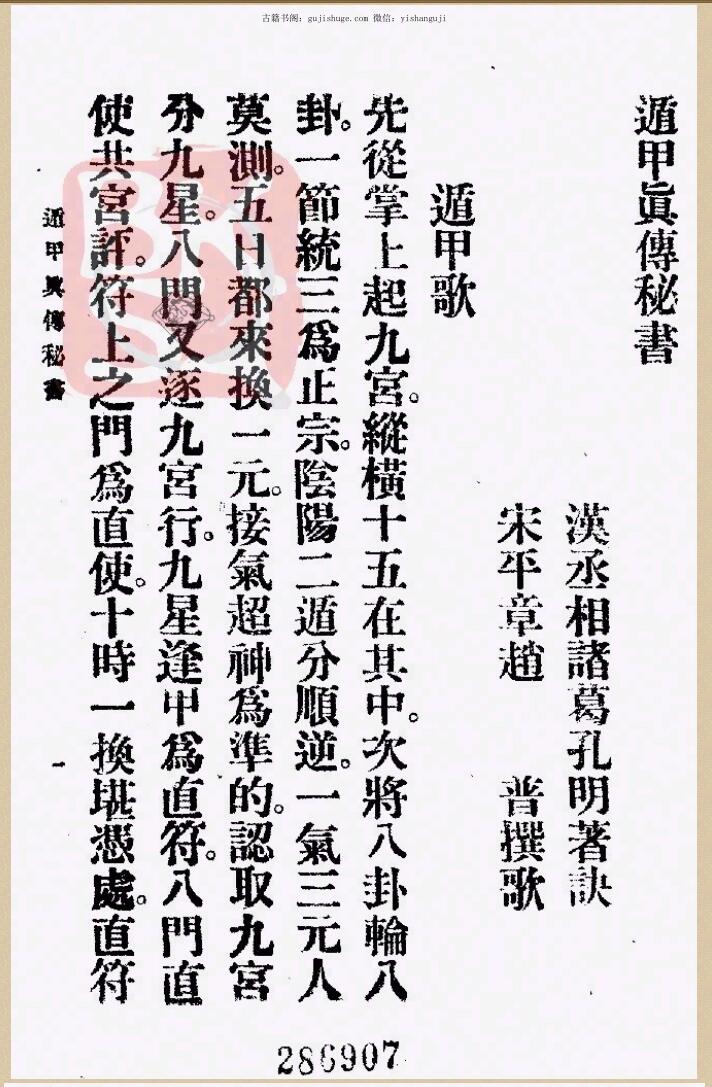 古籍书阁：gujishuge.com 微信：yishanguji
遁甲眞傳秘書
漢丞相諸葛孔明著訣
宋平章趙　普撰歌
遁甲歌
先從掌上起九宮。縱橫十五在其中。次將八卦輪八
卦。一節統三爲正宗。陰陽二遁分順逆。一氣三元人
莫測。五日都來換一元。接氣超神爲準的。認取九宮
分九星。八門又逐九宮行。九星逢甲爲直符。八門直
使共宮評。符上之門爲直使。十時一換堪憑處。直符
遁甲眞傳秘書
一
286907